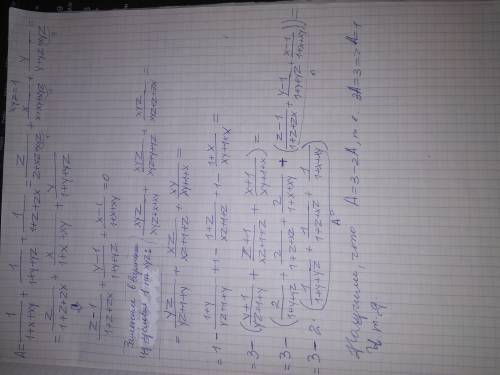 xyz=1
A = 1/(1+x+xy) + 1/(1+y+yz) + 1/(1+z+zx) = z/(z+xz+xyz) + x/(x+xy+xyz) + y/(y+yz+xyz) =
= z/(1+z+zx) + x/(1+x+xy) + y/(1+y+yz)
(z-1)/(1+z+zx) + (y-1)/(1+y+yz) + (x-1)/(1+x+xy) = 0
Заменим в верхних
1 на xyz:
= yz/(yz+1+y) + xz/(xz+1+z) + xy/(xy+1+x) =
= 1 - (1+y)/(yz+1+y) + 1 - (1+z)/(xz+1+z) + 1 - (1+x)/(xy+1+x) =
= 3 - ((y+1)/(yz+1+y) + (z+1)/(xz+1+z) + (x+1)/(xy+1+x)) =
= 3 - (2/(1+y+yz) + 2/(1+z+xz) + 2/(1+x+xy) + (z-1)/(1+z+zx) + (y-1)/(1+y+yz) + (x-1)/(1+x+xy)) =
= 3 - 2·(1/(1+y+yz) + 1/(1+z+xz) + 1/(1+x+xy))
A
Получили, что A=3-2A, т.е. 3A=3 => A=1
ч.т.д.